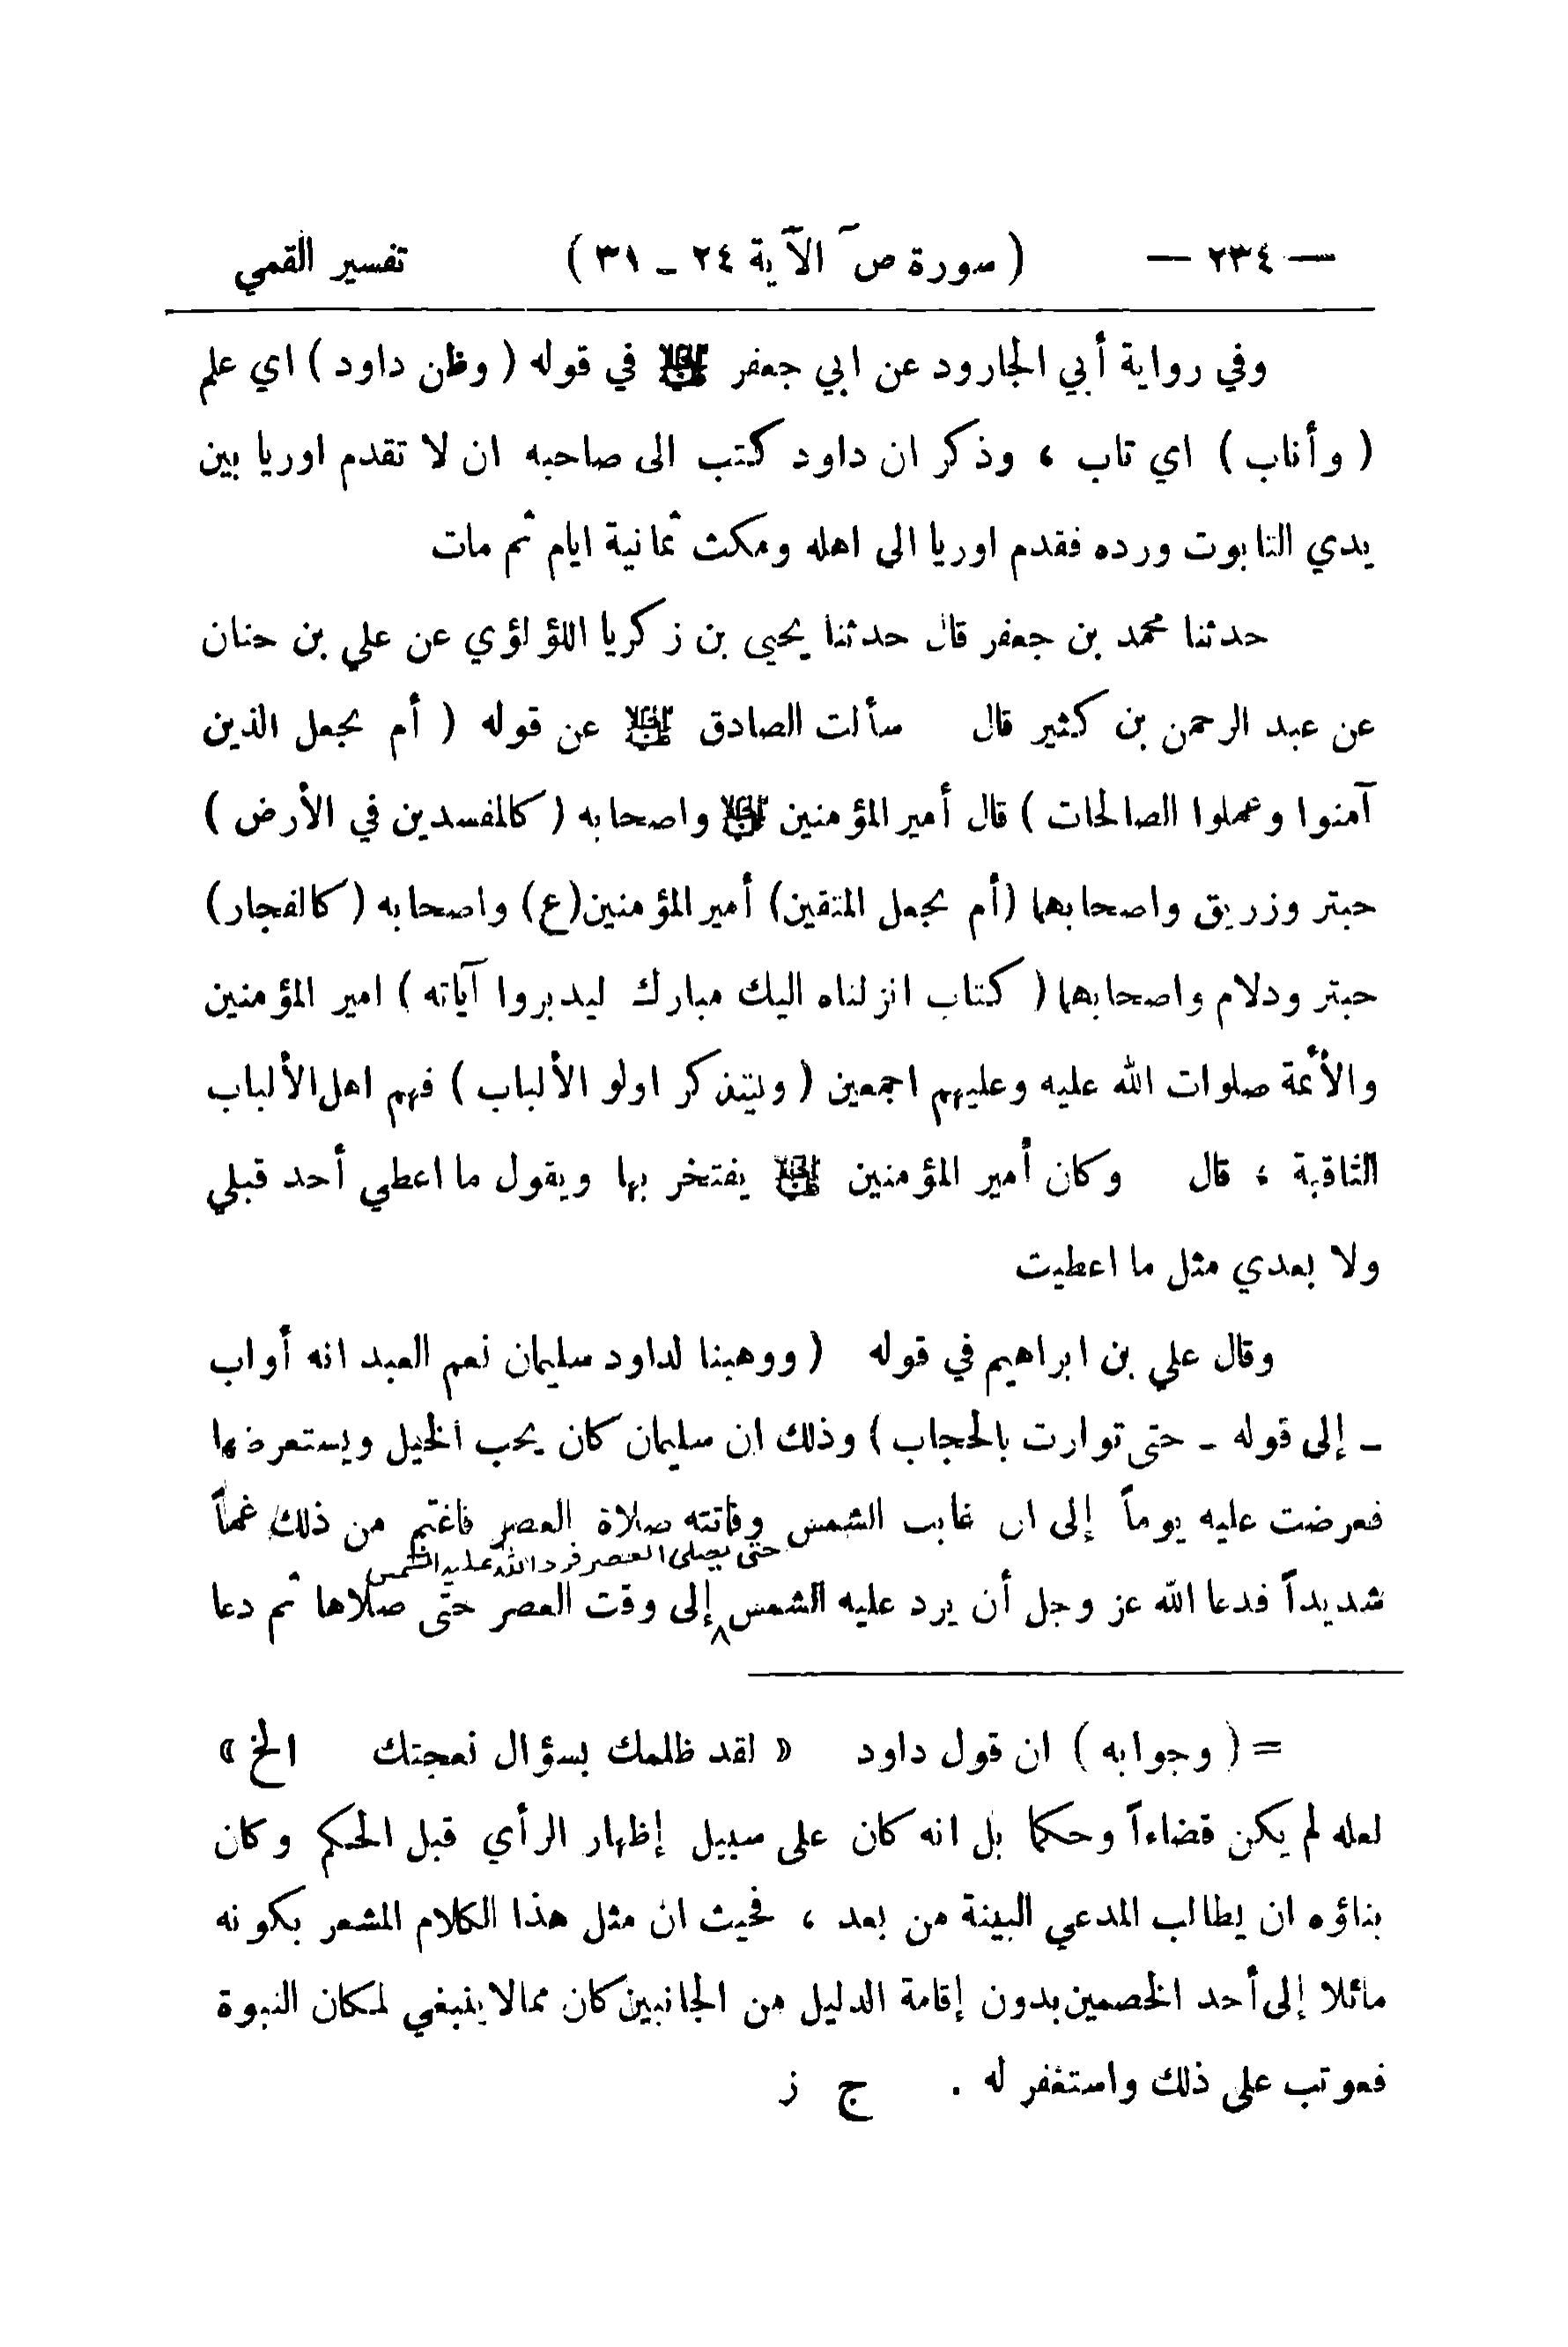 — ٢٣٤ — ( سورة صۤ الآية ٢٤ ـ ٣١ ) تفسير القمي
وفي رواية أبي الجارود عن ابي جعفر عليه السلام في قوله ( وظن داود ) اي علم
( وأناب ) اي تاب ، وذكر ان داود كتب الى صاحبه ان لا تقدم اوريا بين
يدي التابوت ورده فقدم اوريا الى اهله ومكث ثمانية ايام ثم مات
حدثنا محمد بن جعفر قال حدثنا يحيى بن زكريا اللؤلؤي عن علي بن حنان
عن عبد الرحمن بن كثير قال سألت الصادق عليه السلام عن قوله ( أم نجعل الذين
آمنوا وعملوا الصالحات ) قال أمير المؤمنين عليه السلام واصحابه ( كالمفسدين في الأرض )
حبتر وزريق واصحابهما (أم نجعل المتقين) أمير المؤمنين (ع) واصحابه ( كالفجار)
حبتر ودلام واصحابهما ( كتاب انزلناه اليك مبارك ليدبروا آياته ) امير المؤمنين
والأئمة صلوات الله عليه وعليهم اجمعين ( وليتذكر اولو الألباب ) فهم اهل الألباب
الثاقبة ، قال وكان أمير المؤمنين عليه السلام يفتخر بها ويقول ما اعطي أحد قبلي
ولا بعدي مثل ما اعطيت
وقال علي بن ابراهيم في قوله ( ووهبنا لداود سليمان نعم العبد انه أواب
ـ إلى قوله ـ حتى توارت بالحجاب ) وذلك ان سليمان كان يحب الخيل ويستعرضها
فعرضت عليه يوماً إلى ان غابت الشمس وفاتته صلاة العصر فاغتم من ذلك غماً
حتى يصلى العصر فرد الله عليه الشمس
شديداً فدعا الله عز وجل أن يرد عليه الشمس إلى وقت العصر حتى صلاها ثم دعا
= ( وجوابه ) ان قول داود « لقد ظلمك بسؤال نعجتك الخ »
لعله لم يكن قضاءاً وحكما بل انه كان على سبيل إظهار الرأي قبل الحكم وكان
بناؤه ان يطالب المدعي البينة من بعد ، فحيث ان مثل هذا الكلام المشعر بكونه
مائلا إلى أحد الخصمين بدون إقامة الدليل من الجانبين كان مما لا ينبغي لمكان النبوة
فعوتب على ذلك واستغفر له . ج ز